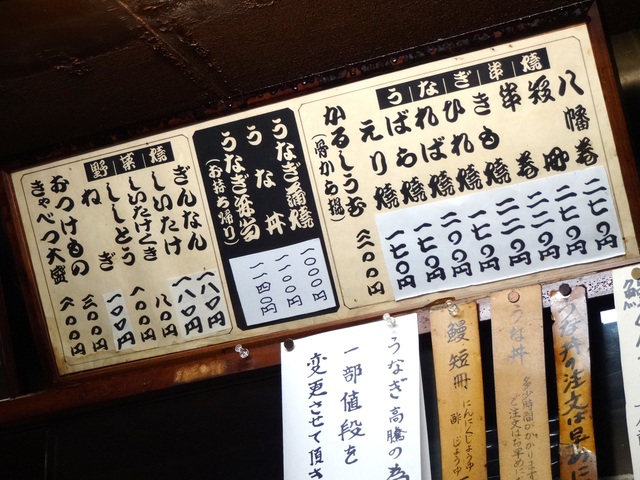 うなぎ串焼
八幡巻
短册
串巻
きも焼
ひれ焼
ればれ焼
ばら焼
えり焼
二七〇円
二七〇円
二二〇円
一七〇円
二〇〇円
一七〇円
一七〇円
かるしうむ
(骨から揚)
三〇〇円
うなぎ蒲焼
うな丼
うなぎ弁当
(お持ち帰り)
一〇〇〇円
一一〇〇円
一一四〇円
野菜焼
ぎんなん
しいたけ
しいたけくき
ししとう
ねぎ
おつけもの
きゃべつ大盛
一八〇円
一八〇円
八〇円
一〇〇円
一〇〇円
三〇〇円
うなぎ高騰の為
一部値段を
変更させて頂き
鰻短冊
にんにくじょうゆ
酢じょうゆ
うな丼
多少時間がかかります
ご注文はお早めに
うな丼の注文は早めに